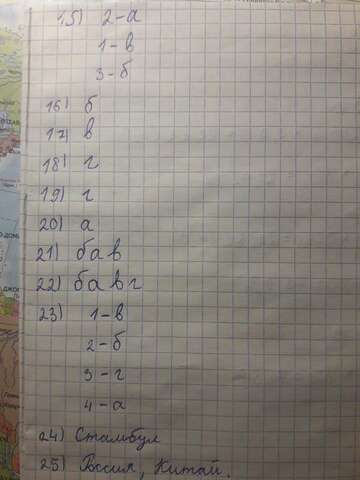 15) 2-а
1-в
3-б
16) б
17) в
18) г
19) г
20) а
21) б а в
22) б а в г
23) 1-в
2-б
3-г
4-а
24) Стамбул
25) Россия, Китай.